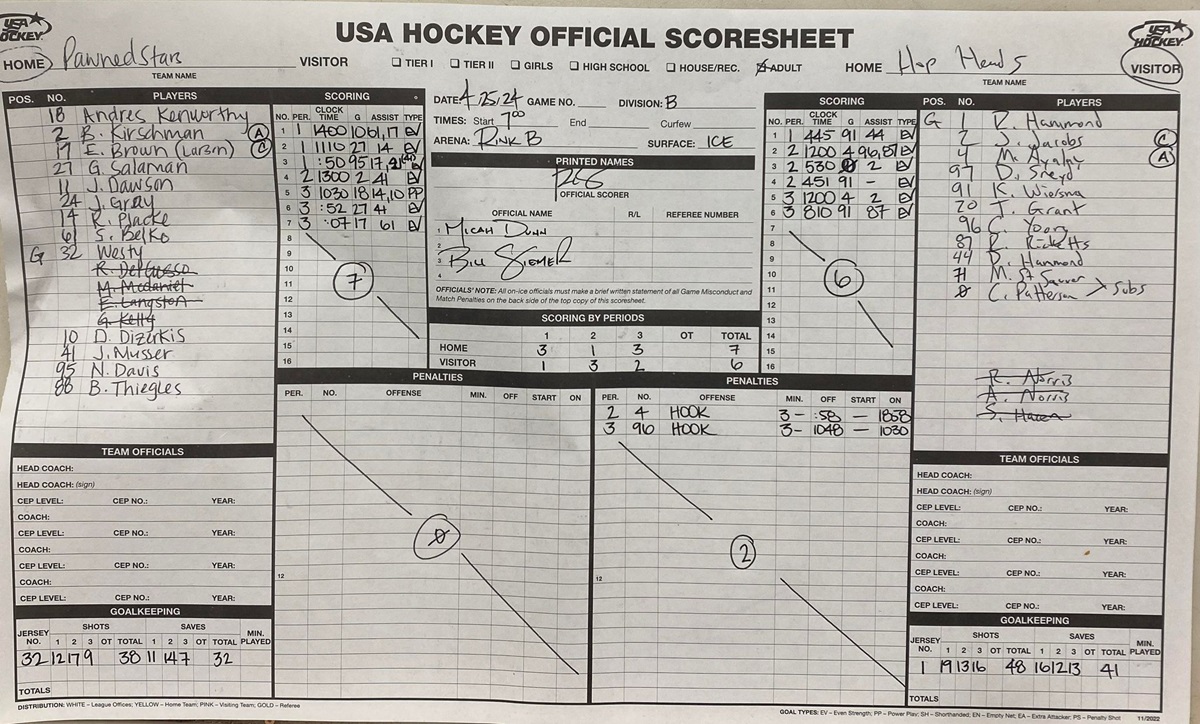 USA HOCKEY OFFICIAL SCORESHEET
USA HOCKEY
USA HOCKEY
HOME Pawned Stars VISITOR
TEAM NAME
☐ TIER I ☐ TIER II ☐ GIRLS ☐ HIGH SCHOOL ☐ HOUSE/REC. ☒ ADULT
HOME Hop Heads VISITOR
TEAM NAME
POS. NO. PLAYERS
18 Andres Kenworthy
2 B. Kirschman A
17 E. Brown (Larsen) C
27 G. Salaman
11 J. Dawson
24 J. Gray
14 R. Placke
61 S. Belko
G 32 Westy
M. McDaniel
E. Langston
G. Kelly
10 D. Dizerkis
41 J. Musser
95 N. Davis
88 B. Thiegles
SCORING
NO. PER. CLOCK TIME G ASSIST TYPE
1 1 1400 10 61,17 EV
2 1 1110 27 14 EV
3 1 :50 95 17,
4 2 1300 2 41 EV
5 3 1030 18 14,10 PP
6 3 :52 27 41 EV
7 3 :07 17 61 EV
8
9
10
11
12
13
14
15
16
7
DATE: 4/25/24 GAME NO. DIVISION: B
TIMES: Start 700 End Curfew
ARENA: Rink B SURFACE: ICE
PRINTED NAMES
OFFICIAL SCORER
OFFICIAL NAME R/L REFEREE NUMBER
1 Micah Dunn
2
3 Bill Siemer
4
OFFICIALS' NOTE: All on-ice officials must make a brief written statement of all Game Misconduct and
Match Penalties on the back side of the top copy of this scoresheet.
SCORING BY PERIODS
1 2 3 OT TOTAL
HOME 3 1 3 7
VISITOR 1 3 2 6
SCORING
NO. PER. CLOCK TIME G ASSIST TYPE
1 1 445 91 44 EV
2 2 1200 4 96,87 EV
3 2 530 0 2 EV
4 2 451 91 - EV
5 3 1200 4 2 EV
6 3 810 91 87 EV
7
8
9
10
11
12
13
14
15
16
6
POS. NO. PLAYERS
G 1 R. Hammond
2 S. Jacobs C
4 M. Ayala A
97 D. Sneyd
91 K. Wiersma
20 T. Grant
96 C. Yoon
87 R. Ricketts
44 D. Hammond
71 M. St Sauver
0 C. Patterson > Subs
R. Norris
A. Norris
PENALTIES
PER. NO. OFFENSE MIN. OFF START ON
0
12
PENALTIES
PER. NO. OFFENSE MIN. OFF START ON
2 4 HOOK 3- :58 — 1858
3 96 HOOK 3- 1048 — 1030
2
12
TEAM OFFICIALS
HEAD COACH:
HEAD COACH: (sign)
CEP LEVEL: CEP NO.: YEAR:
COACH:
CEP LEVEL: CEP NO.: YEAR:
COACH:
CEP LEVEL: CEP NO.: YEAR:
COACH:
CEP LEVEL: CEP NO.: YEAR:
GOALKEEPING
JERSEY NO. SHOTS 1 2 3 OT TOTAL SAVES 1 2 3 OT TOTAL MIN. PLAYED
32 12 17 9 38 11 14 7 32
TOTALS
TEAM OFFICIALS
HEAD COACH:
HEAD COACH: (sign)
CEP LEVEL: CEP NO.: YEAR:
COACH:
CEP LEVEL: CEP NO.: YEAR:
COACH:
CEP LEVEL: CEP NO.: YEAR:
COACH:
CEP LEVEL: CEP NO.: YEAR:
GOALKEEPING
JERSEY NO. SHOTS 1 2 3 OT TOTAL SAVES 1 2 3 OT TOTAL MIN. PLAYED
1 19 13 16 48 16 12 13 41
TOTALS
DISTRIBUTION: WHITE – League Offices; YELLOW – Home Team; PINK – Visiting Team; GOLD – Referee
GOAL TYPES: EV – Even Strength; PP – Power Play; SH – Shorthanded; EN – Empty Net; EA – Extra Attacker; PS – Penalty Shot 11/2022